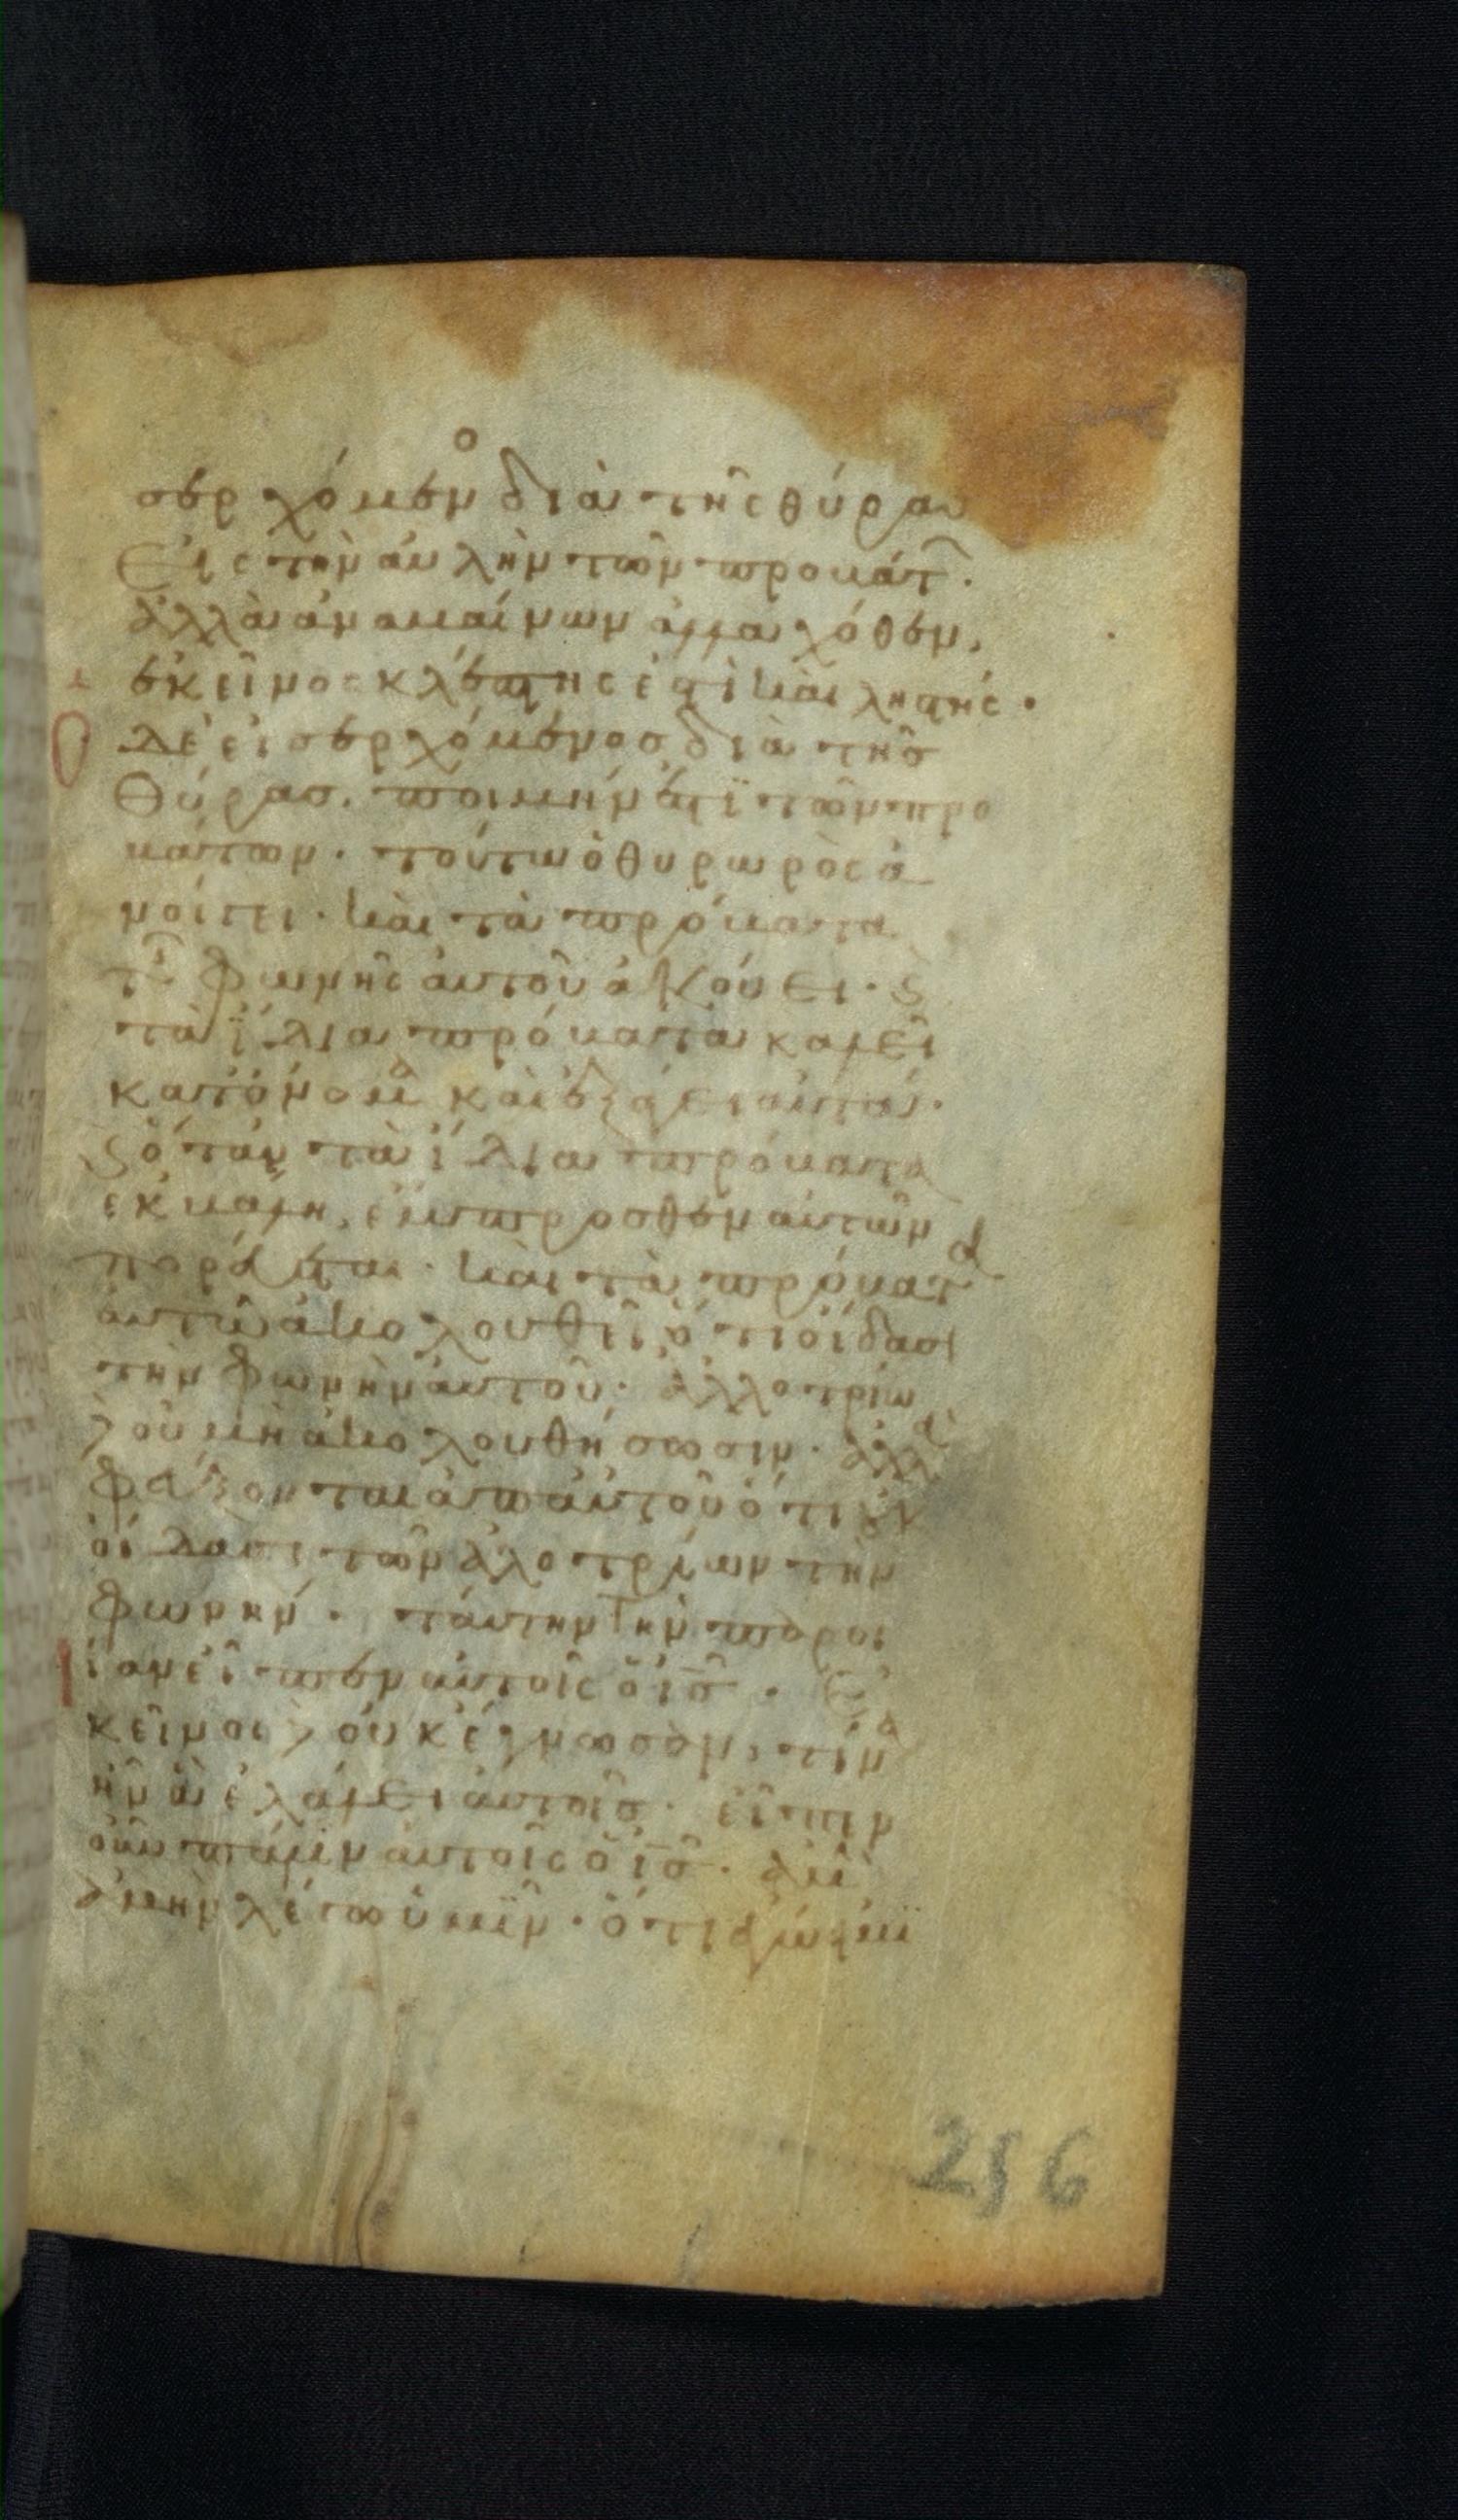 σερχόμεν ο διὰ τῆς θύρασ
Εἰς τὴν ἀυλὴν τῶν προβάτ.
ἀλλὰ ἀναβαίνων ἀλλαχόθεν,
ἐκεῖνος κλέπτης ἐστὶ καὶ ληστής.
Ο δὲ εἰσερχόμενοσ διὰ τῆσ
Θύρασ, ποιμήν ἐστϊ τῶν προ
βάτων. τούτω ὁ θυρωρὸς ἀ
νοίγει. καὶ τὰ πρόβατα
τ φωνῆς ἀυτοῦ ἀκούει. ϛ
τὰ ἴδια πρόβατα καλεῖ
κατόνομα καὶ ἐξάγει ἀυτά.
ϛ ὅταν τὰ ἴδια πρόβατα
ἐκβάλη, ἔμπροσθεν ἀυτῶν
πορέυεται. καὶ τὰ πρόβατα
ἀυτῶ ἀκολουθεῖ ὅτι οἴδασι
τὴν φωνὴν ἀυτοῦ. ἀλλοτρίω
δὲ οὐ μὴ ἀκολουθήσωσιν. ἀλλὰ
φεύξονται ἀπ ἀυτοῦ ὅτι οὐκ
οἴδασι τῶν ἀλοτρίων τὴν
φωνήν. τάυτην τὴν παροι
ΐαν εἶπεν ἀυτοῖς ὁ ισ. Ἐ
κεῖνοι δὲ οὐκ ἔγνωσαν, τίνα
ἦν ἃ ἐλάλει ἀυτοῖσ. εἶπεν
οὖν πάλιν ἀυτοῖς ὁ ισ. ἀμὴ
ἀμὴν λέγω ὑμῖν. ὅτι ἐγώ εἰμϊ
256